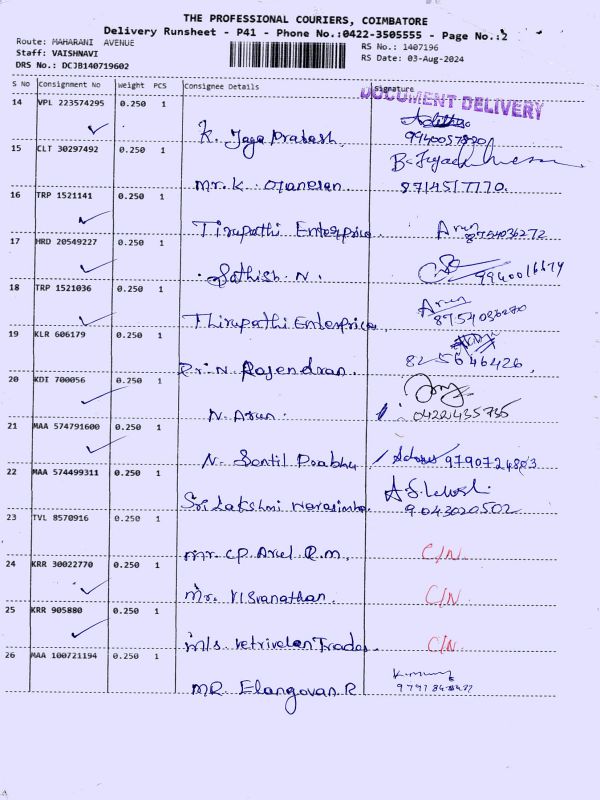 THE PROFESSIONAL COURIERS, COIMBATORE
Delivery Runsheet - P41 - Phone No.:0422-3505555 - Page No.:2
Route: MAHARANI AVENUE
Staff: VAISHNAVI
DRS No.: DCJB140719602
RS No.: 1407196
RS Date: 03-Aug-2024
S No Consignment No Weight PCS Consignee Details Signature
DOCUMENT DELIVERY
14 VPL 223574295 0.250 1
K. Jaga Prakash
15 CLT 30297492 0.250 1
Mr. K. 8714517770.
16 TRP 1521141 0.250 1
Tirupathi Enterprice Arun
17 HRD 20549227 0.250 1
Sathish. N.
18 TRP 1521036 0.250 1
Thirupathi Enterprice Arun
19 KLR 606179 0.250 1
Dr. N. Rajendran.
20 KDI 700056 0.250 1
N. Arun. 0422435735
21 MAA 574791600 0.250 1
N. Sentil Prabhu
22 MAA 574499311 0.250 1
Sri Lakshmi Narasimha 9043020502
23 TVL 8570916 0.250 1
Mr. CP Arul R.M. C/N.
24 KRR 30022770 0.250 1
Mr. Visvanathan. C/N.
25 KRR 905880 0.250 1
M/s. Vetrivelan Trades. C/N.
26 MAA 100721194 0.250 1
MR. Elangovan. R